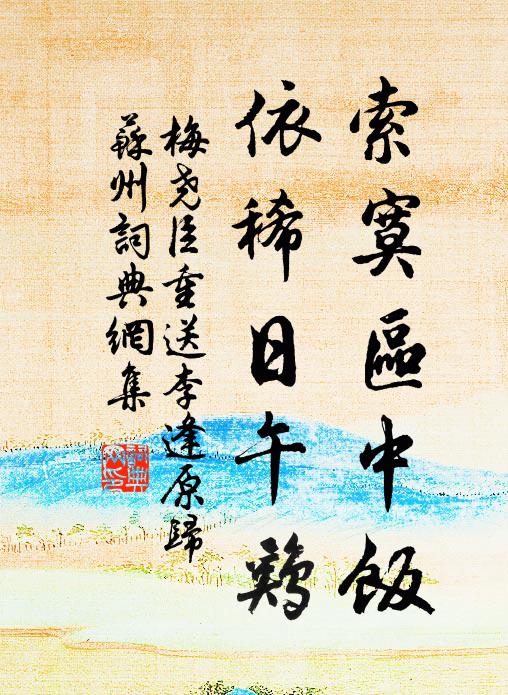 索寞區中飯
依稀日午鷄
梅堯臣重送李逢原歸
蘇州詞典網集